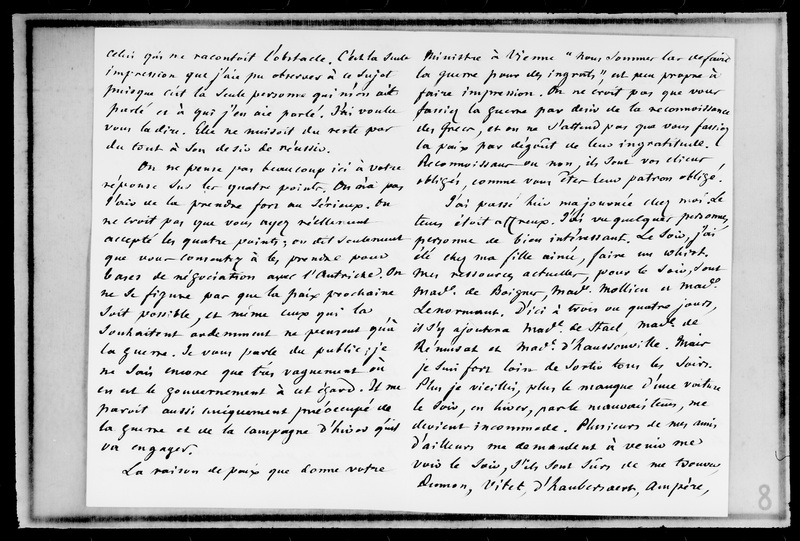 celui qui me racontoit l'obstacle. C'est la seule
impression que j'aie pu observer à ce sujet
puisque c'est la seule personne qui m'en ait
parlé et à qui j'en aie parlé. J'ai voulu
vous la dire. Elle ne nuisoit du reste pas
du tout à son desir de réussir.
On ne pense pas beaucoup ici à votre
réponse sur les quatre points. On n'a pas
l'air de la prendre fort au sérieux. On
ne croit pas que vous ayez réellement
accepté les quatre points; on dit seulement
que vous consentez à les prendre pour
bases de négociation avec l'Autriche. On
ne se figure pas que la paix prochaine
soit possible, et même ceux qui la
souhaitent ardemment ne pensent qu'à
la guerre. Je vous parle du public; je
ne sais encore que très vaguement où
en est le gouvernement à cet égard. Il me
paroit aussi uniquement préoccupé de
la guerre et de la campagne d'hiver qu'il
va engager.
La raison de paix que donne votre
Ministre à Vienne "nous sommes las de faire
la guerre pour des ingrats", est peu propre à
faire impression. On ne croit pas que vous
fassiez la guerre par desir de la reconnoissance
des Grecs, et on ne s'attend pas que vous fassiez
la paix par dégoût de leur ingratitude.
Reconnoissans ou non, ils sont vos cliens
obligés, comme vous êtes leur patron obligé.
J'ai passé hier ma journée chez moi. Le
tems étoit affreux. J'ai vu quelques personnes,
personne de bien intéressant. Le soir, j'ai
été chez ma fille ainée, faire un whist.
Mes ressources actuelles, pour le soir, sont
Mad.e de Boigne, Mad.e Mollien et Mad.e
Lenormant. D'ici à trois ou quatre jours,
il s'y ajoutera Mad.e de Stael, Mad.e de
Rémusat et Mad.e d'Haussonville. Mais
je suis fort loin de sortir tous les soirs.
Plus je vieillis, plus le manque d'une voiture
le soir, en hiver, par le mauvais tems, me
devient incommode. Plusieurs de mes amis
d'ailleurs me demandent à venir me
voir le soir, s'ils sont sûrs de me trouver,
Dumon, Vitet, d'Haubersaert, Ampère,
8